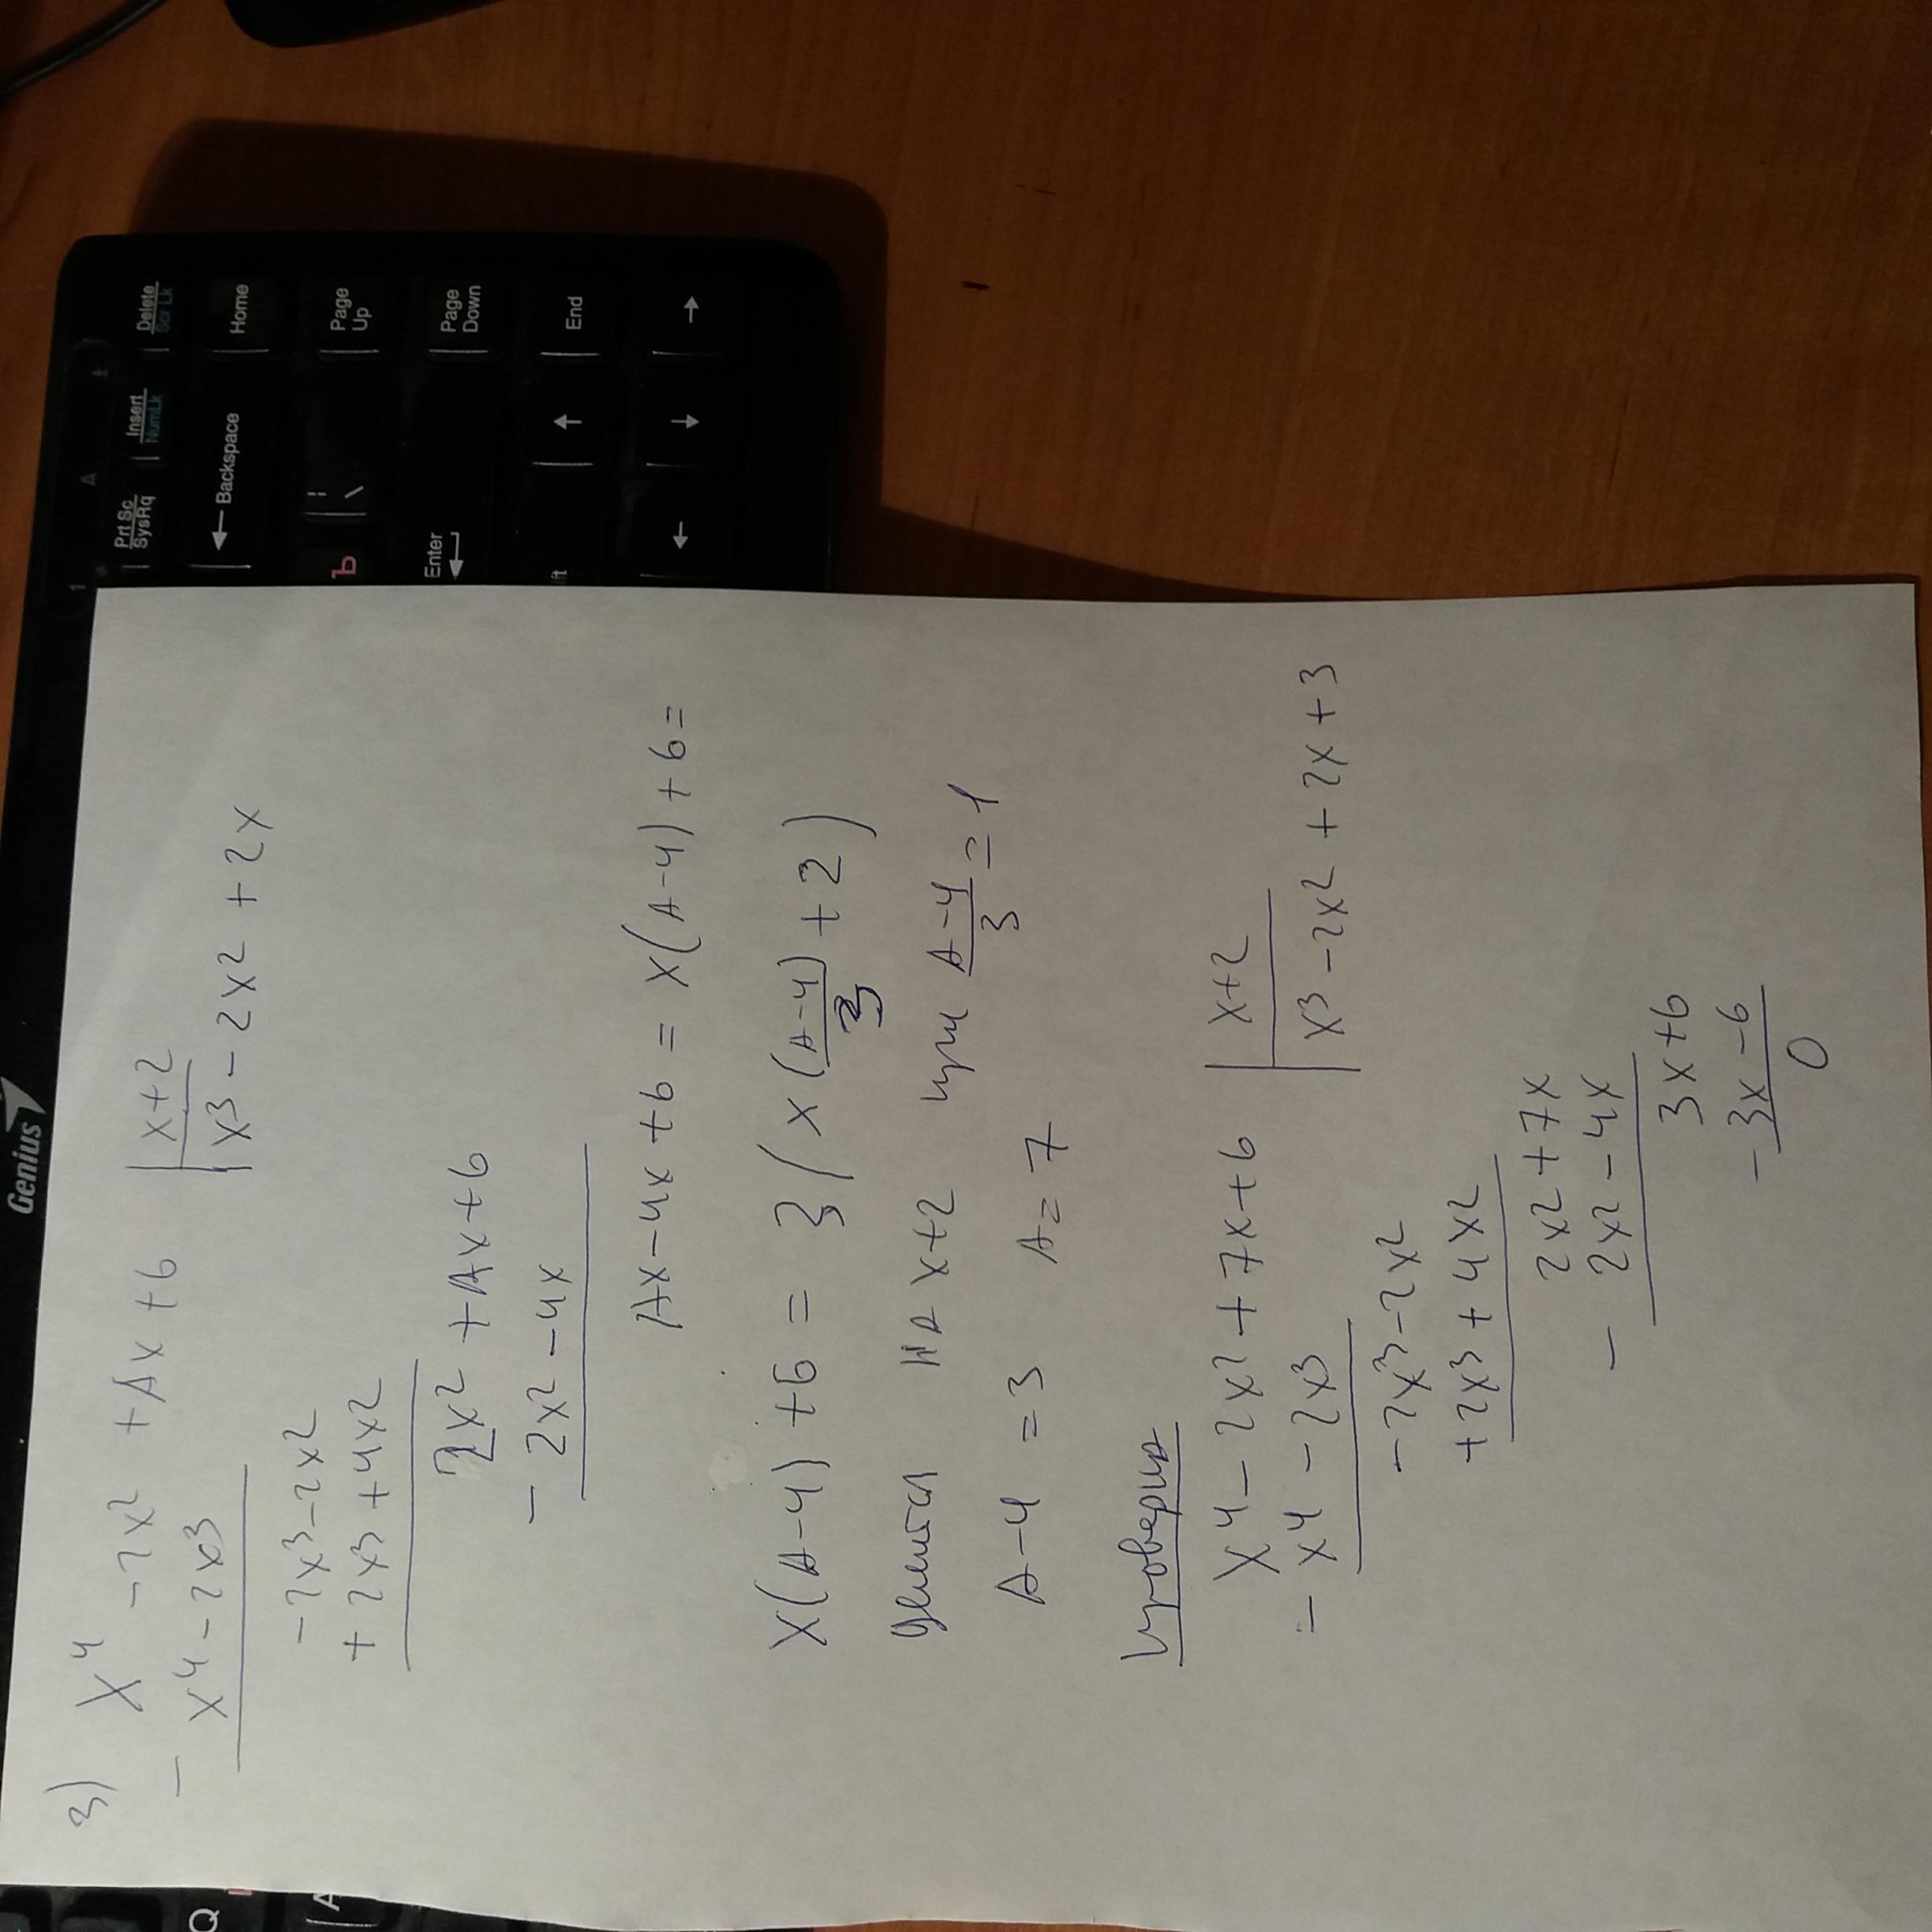 Genius
Prt Sc
SysRq
Insert
NumLk
Delete
Scr Lk
Backspace
Home
Page
Up
Ъ
Enter
Page
Down
End
Q
A
3) x⁴ - 2x² + Ax + 6 | x+2
- x4 - 2x3
x3 - 2x2 + 2x
-2x3 - 2x2
+ 2x3 + 4x2
2x2 + Ax + 6
- 2x2 - 4x
Ax - 4x + 6 = x(A-4) + 6 =
x(A-4) + 6 = 3(x(A-4)/3 + 2)
делится на x+2 при (A-4)/3 = 1
A-4 = 3 A = 7
проверка
x4 - 2x2 + 7x + 6 | x+2
- x4 - 2x3
x3 - 2x2 + 2x + 3
-2x3 - 2x2
+2x3 + 4x2
2x2 + 7x
- 2x2 - 4x
3x + 6
- 3x - 6
0